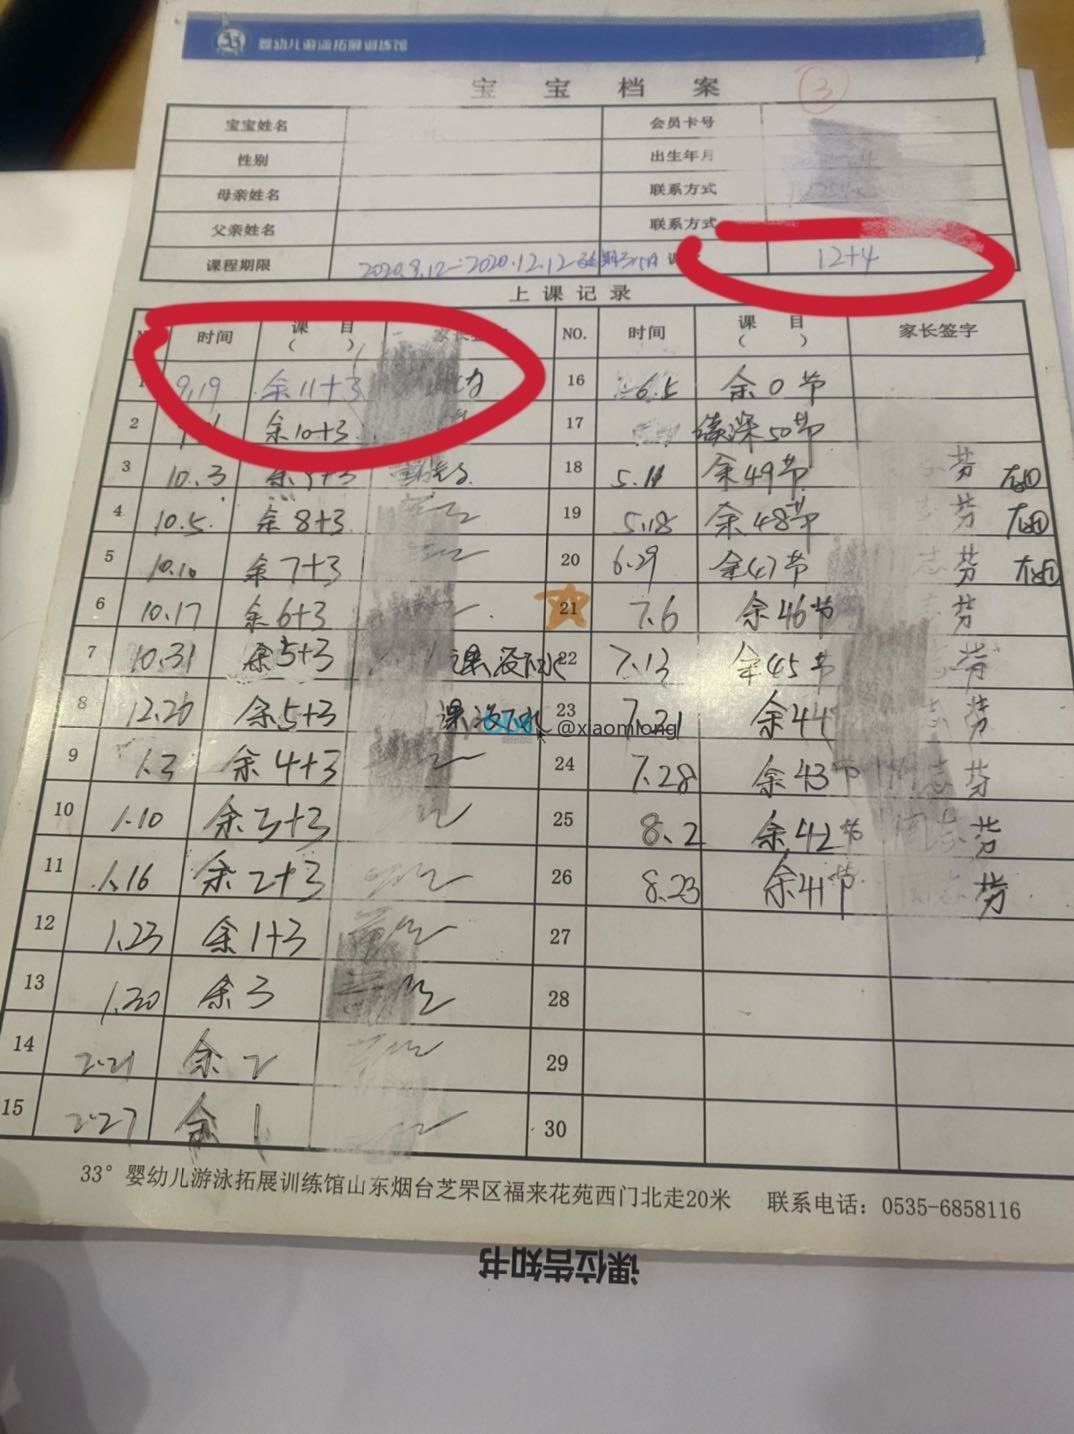 婴幼儿游泳拓展训练馆
宝宝档案
③
宝宝姓名 会员卡号
性别 出生年月
母亲姓名 联系方式
父亲姓名 联系方式
课程期限 2020.9.12-2020.12.12 12+4
上课记录
时间 课目 ( ) NO. 时间 课目 ( ) 家长签字
1 9.19 余11+3 16 6.5 余0节
2 余10+3 17 续深50节
3 10.3 余9+3 18 5.11 余49节 芳
4 10.5. 余8+3 19 5.18 余48节 芳
5 10.10 余7+3 20 6.29 余47节 志芳
6 10.17 余6+3 21 7.6 余46节 芳
7 10.31 余5+3 课没下水 22 7.13 余45节 芳
8 12.26 余5+3 课没下水 23 7.21 余44 芳
@xiaomiong
9 1.3 余4+3 24 7.28 余43节 志芳
10 1.10 余3+3 25 8.2 余42节 芳
11 1.16 余2+3 26 8.23 余41节 芳
12 1.23 余1+3 27
13 1.30 余3 28
14 2.21 余2 29
15 2.27 余1 30
33°婴幼儿游泳拓展训练馆山东烟台芝罘区福来花苑西门北走20米 联系电话：0535-6858116
课位告知书